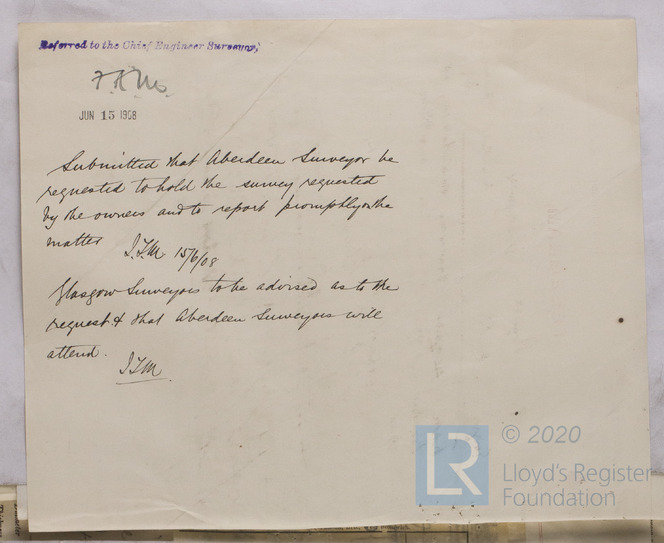 Referred to the Chief Engineer Surveyor,
JUN 15 1908
Submitted that Aberdeen Surveyor be
requested to hold the survey requested
by the owners and to report promptly on the
matter J.T.M. 15/6/08
Glasgow Surveyors to be advised as to the
request & that Aberdeen Surveyors will
attend.
JTM
LR © 2020
Lloyd's Register
Foundation